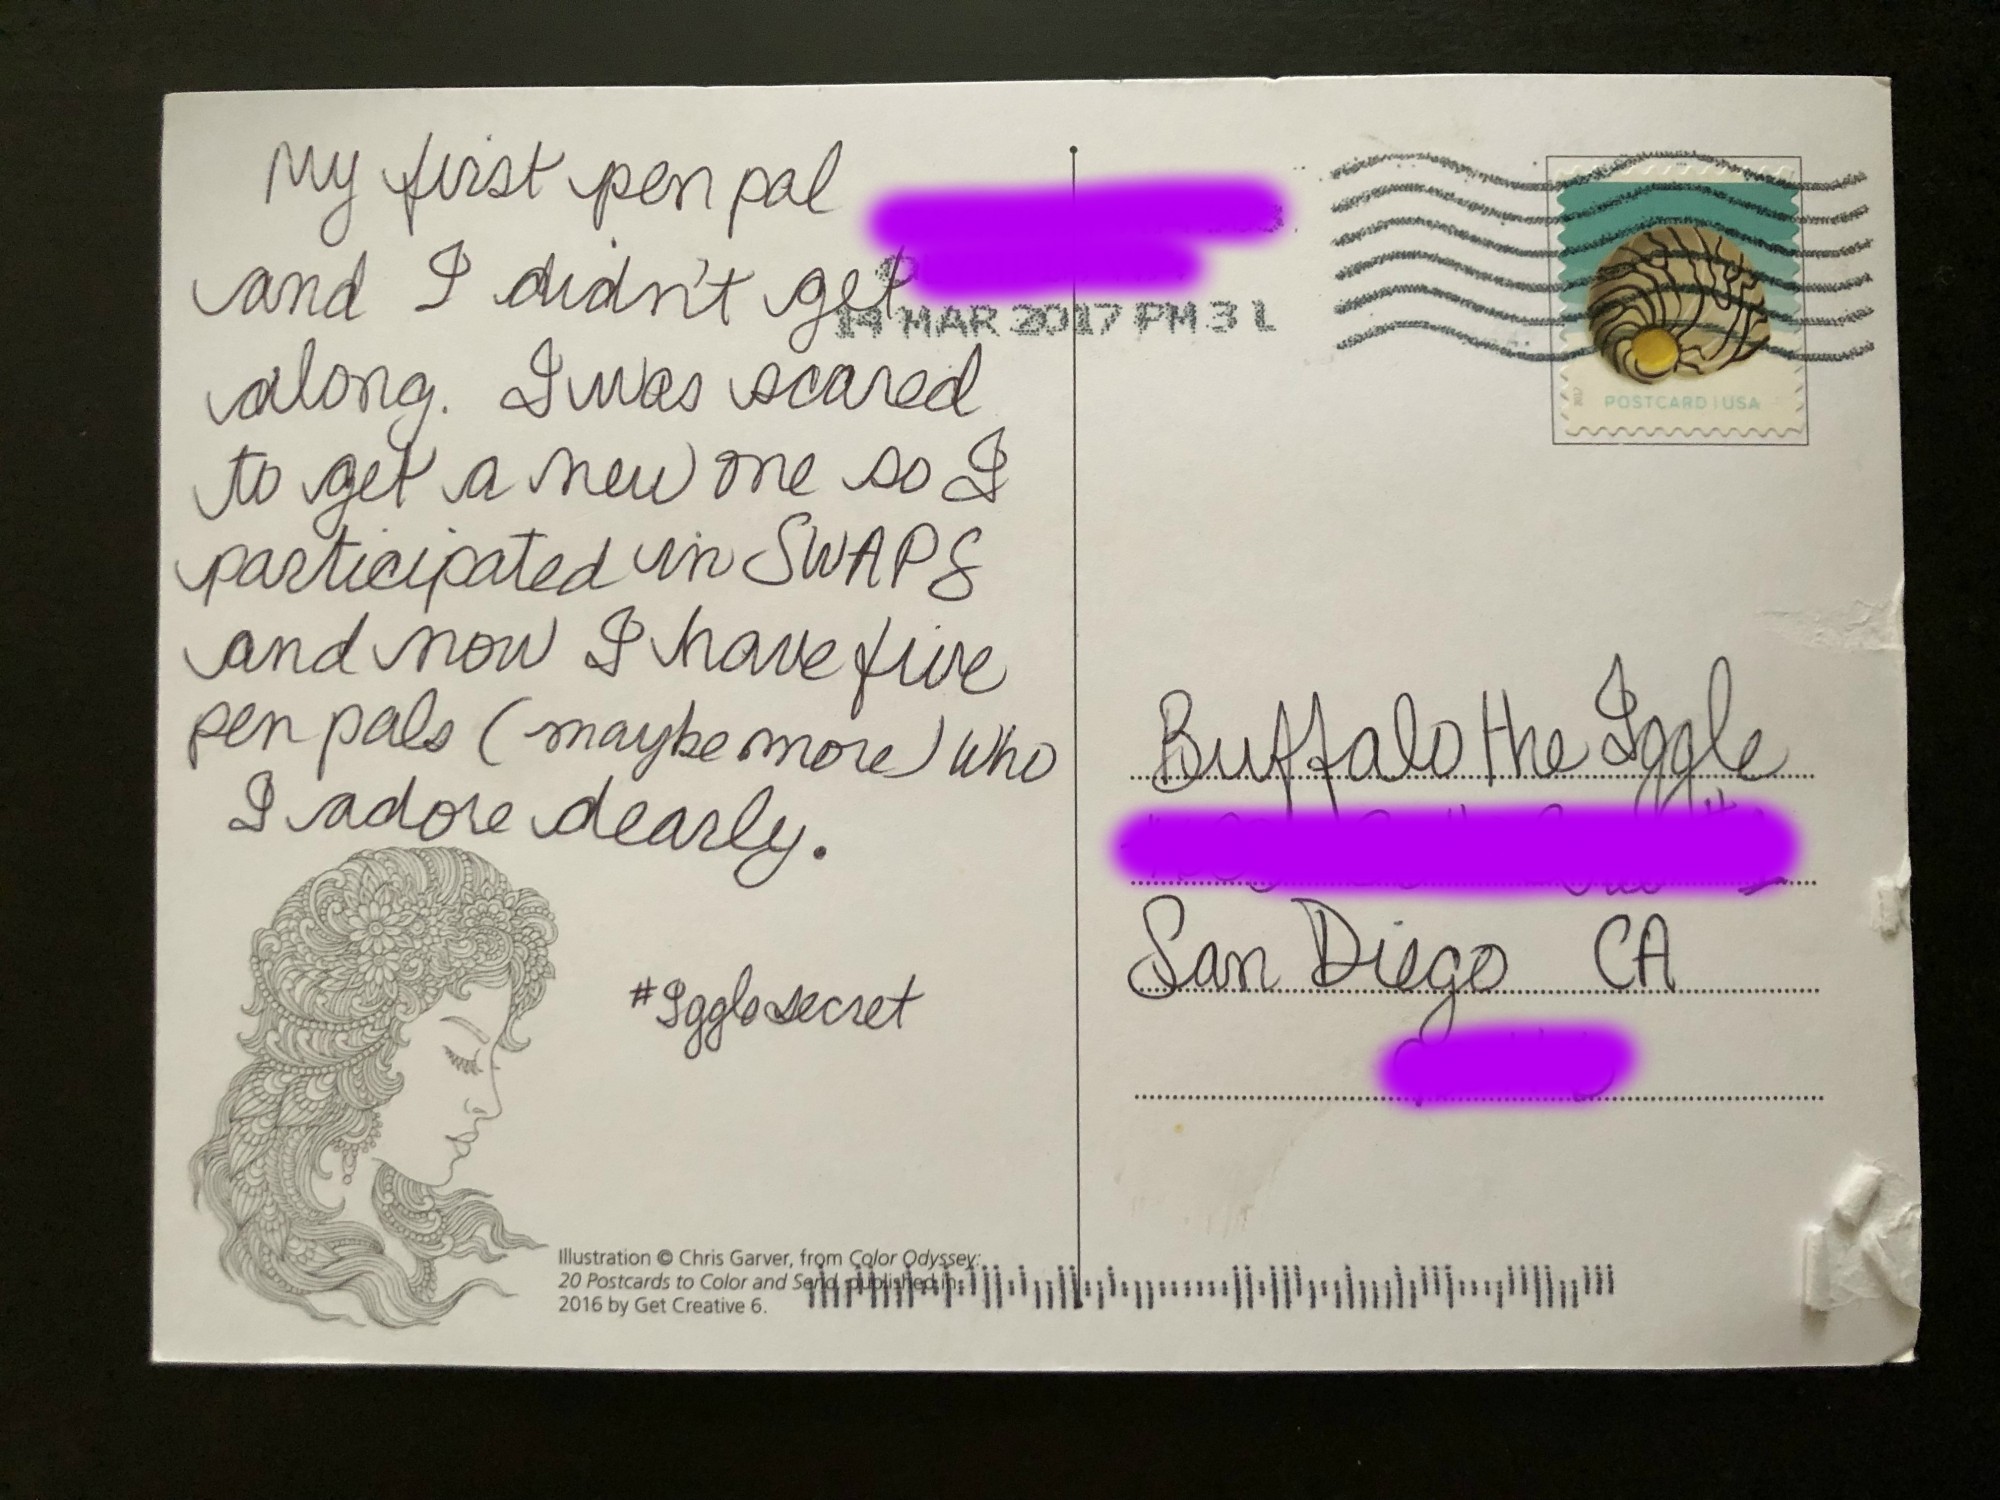 My first pen pal
and I didn't get
along. I was scared
to get a new one so I
participated in SWAPS
and now I have five
pen pals (maybe more) who
I adore dearly.
#Igglesecret
Illustration © Chris Garver, from Color Odyssey:
20 Postcards to Color and Send, published in
2016 by Get Creative 6.
14 MAR 2017 PM 3 L
2017
POSTCARD | USA
Buffalo the Iggle
San Diego CA